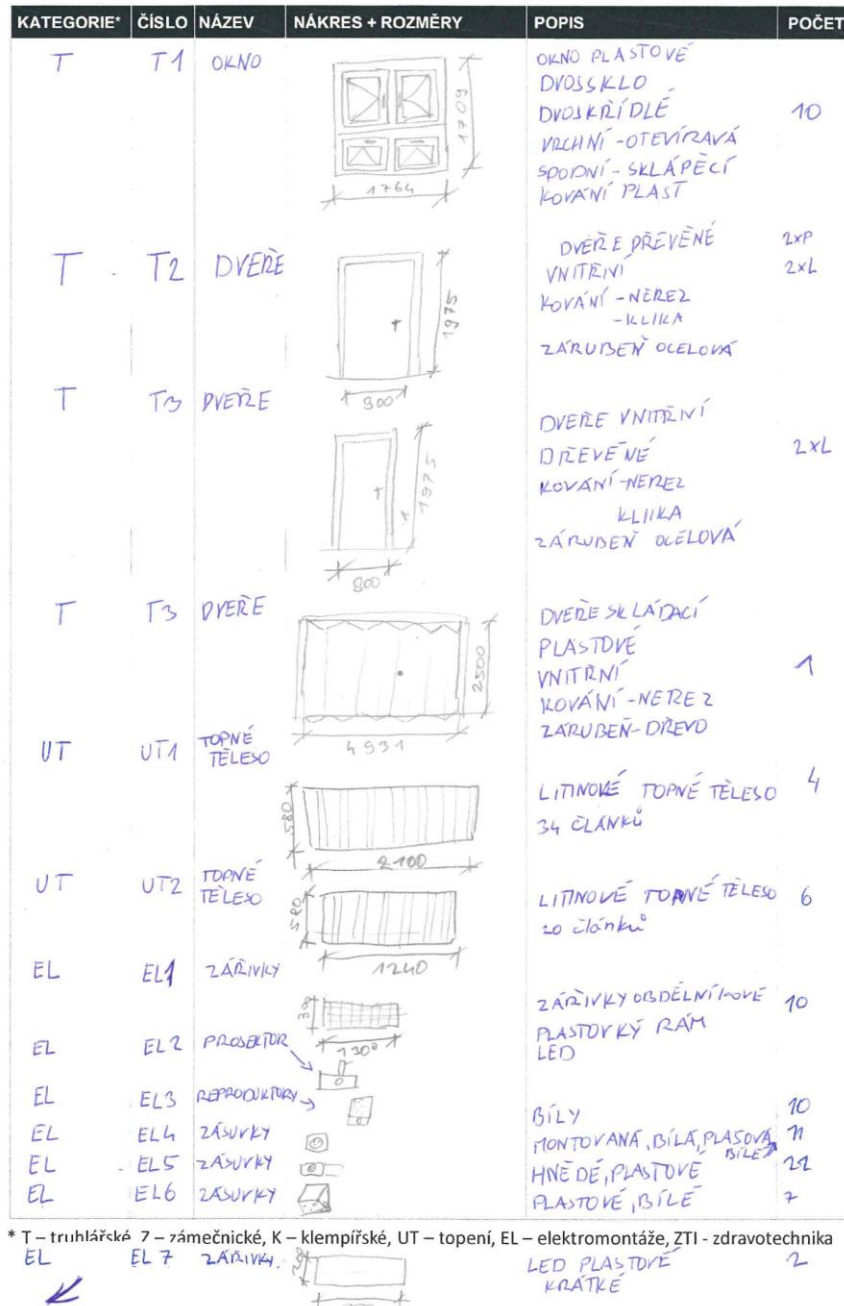 KATEGORIE* ČÍSLO NÁZEV NÁKRES + ROZMĚRY POPIS POČET
T T1 OKNO 1709 1764 OKNO PLASTOVÉ
DVOJSKLO
DVOJKŘÍDLÉ 10
VRCHNÍ-OTEVÍRAVÁ
SPODNÍ-SKLÁPĚCÍ
KOVÁNÍ PLAST
T T2 DVEŘE 1975 900 DVEŘE DŘEVĚNÉ 2xP
VNITŘNÍ 2xL
KOVÁNÍ-NEREZ
-KLIKA
ZÁRUBEŇ OCELOVÁ
T T3 DVEŘE 1975 800 DVEŘE VNITŘNÍ
DŘEVĚNÉ 2xL
KOVÁNÍ-NEREZ
KLIKA
ZÁRUBEŇ OCELOVÁ
T T3 DVEŘE 2500 4931 DVEŘE SKLÁDACÍ
PLASTOVÉ
VNITŘNÍ 1
KOVÁNÍ-NEREZ
ZÁRUBEŇ-DŘEVO
UT UT1 TOPNÉ
TĚLESO 580 2100 LITINOVÉ TOPNÉ TĚLESO 4
34 ČLÁNKŮ
UT UT2 TOPNÉ
TĚLESO 580 1240 LITINOVÉ TOPNÉ TĚLESO 6
20 článků
EL EL1 ZÁŘIVKY 130° ZÁŘIVKY OBDÉLNÍKOVÉ 10
PLASTOVKÝ RÁM
LED
EL EL2 PROJEKTOR
EL EL3 REPRODUKTORY BÍLY 10
EL EL4 ZÁSUVKY MONTOVANÁ, BÍLÁ, PLASOVÁ 11
BÍLÉ
EL EL5 ZÁSUVKY HNĚDÉ, PLASTOVÉ 22
EL EL6 ZÁSUVKY PLASTOVÉ, BÍLÉ 7
* T – truhlářské, Z – zámečnické, K – klempířské, UT – topení, EL – elektromontáže, ZTI - zdravotechnika
EL EL 7 ZÁŘIVK. LED PLASTOVÉ 2
KRÁTKÉ